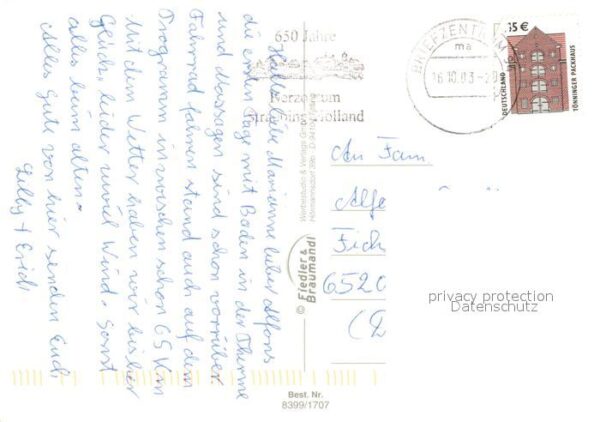 Hallo liebe Marianne lieber Alfons
die ersten Tage mit Baden in der Therme
und Massagen sind schon vorrüber
Fahrrad fahren stand auch auf dem
Programm inzwischen schon 65 Km
Mit dem Wetter haben wir bis hier
Glück leider zuviel Wind. Sonst
alles beim alten.
Alles Gute von hier senden Euch
Erich
650 Jahre
Herzogtum
Straubing Holland
BRIEFZENTRUM
ma
16.10.03
DEUTSCHLAND
TÖNNINGER PACKHAUS
Werbestudio & Verlags GmbH
© Fiedler &
Braumandl
An Fam.
Alfo
Fich
6520
privacy protection
Datenschutz
Best. Nr.
8399/1707